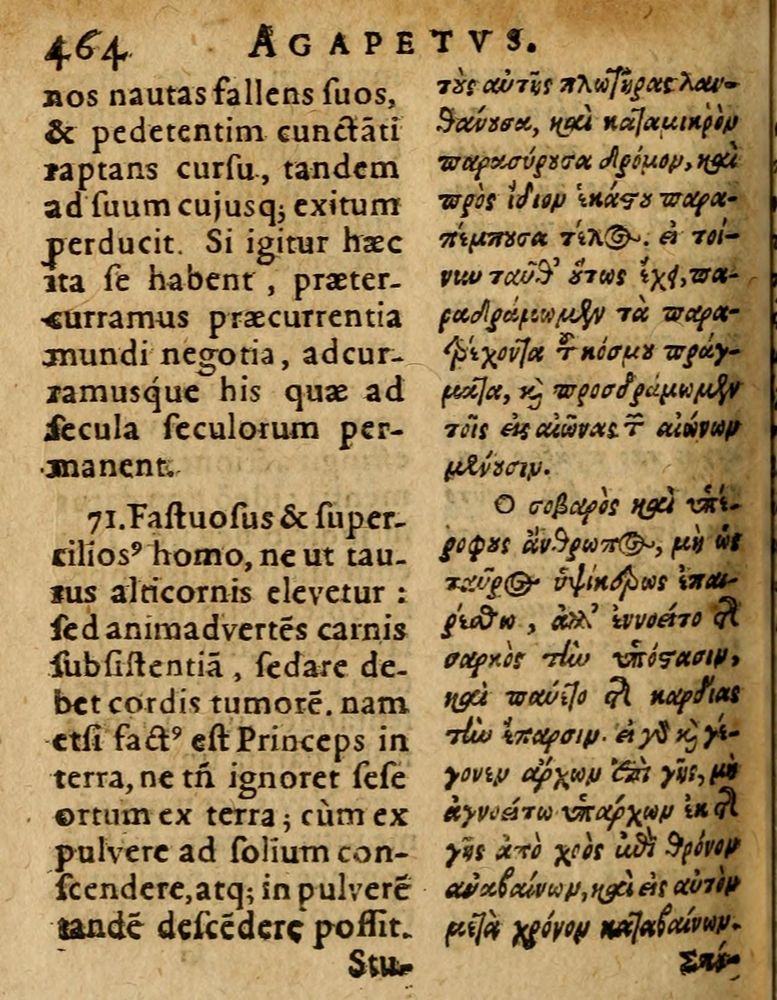 464 AGAPETVS.
nos nautas fallens ſuos,
& pedetentim cunctāti
raptans curſu, tandem
ad ſuum cujusq; exitum
perducit. Si igitur hæc
ita ſe habent, præter-
curramus præcurrentia
mundi negotia, adcur-
ramusq́ue his quæ ad
ſecula ſeculorum per-
manent.
71. Faſtuoſus & ſuper-
cilioſꝰ homo, ne ut tau-
rus alticornis elevetur:
ſed animadvertēs carnis
ſubſiſtentiā, ſedare de-
bet cordis tumorē. nam
etſi factꝰ eſt Princeps in
terra, ne tñ ignoret ſeſe
ortum ex terra; cùm ex
pulvere ad ſolium con-
ſcendere, atq; in pulverē
tandē deſcēdere poſſit.
Stu-
τοὺς αὐτῆς πλωτῆρας λαν-
θάνουσα, καὶ καταμικρὸν
παρασύρουσα δρόμον, καὶ
πρὸς ἴδιον ἑκάστου παρα-
πέμπουσα τέλος. εἰ τοί-
νυν ταῦθ' οὕτως ἔχει, πα-
ραδράμωμεν τὰ παρα-
τρέχοντα τοῦ κόσμου πράγ-
ματα, καὶ προσδράμωμεν
τοῖς εἰς αἰῶνας τῶν αἰώνων
μένουσιν.
Ο σοβαρὸς καὶ ὑπέ-
ροφρυς ἄνθρωπος, μὴ ὡς
ταῦρος ὑψίκερως ἐπαι-
ρέσθω, ἀλλ' ἐννοείτο τῆς
σαρκὸς τὴν ὑπόστασιν,
καὶ παύετο τῆς καρδίας
τὴν ἔπαρσιν. εἰ γὰρ καὶ γέ-
γονεν ἄρχων ἐπὶ γῆς, μὴ
ἀγνοείτω ὑπάρχων ἐκ τῆς
γῆς ἀπὸ χοὸς ἐπὶ θρόνον
ἀναβαίνων, καὶ εἰς αὐτὸν
μετὰ χρόνον καταβαίνων.
Σπέ-